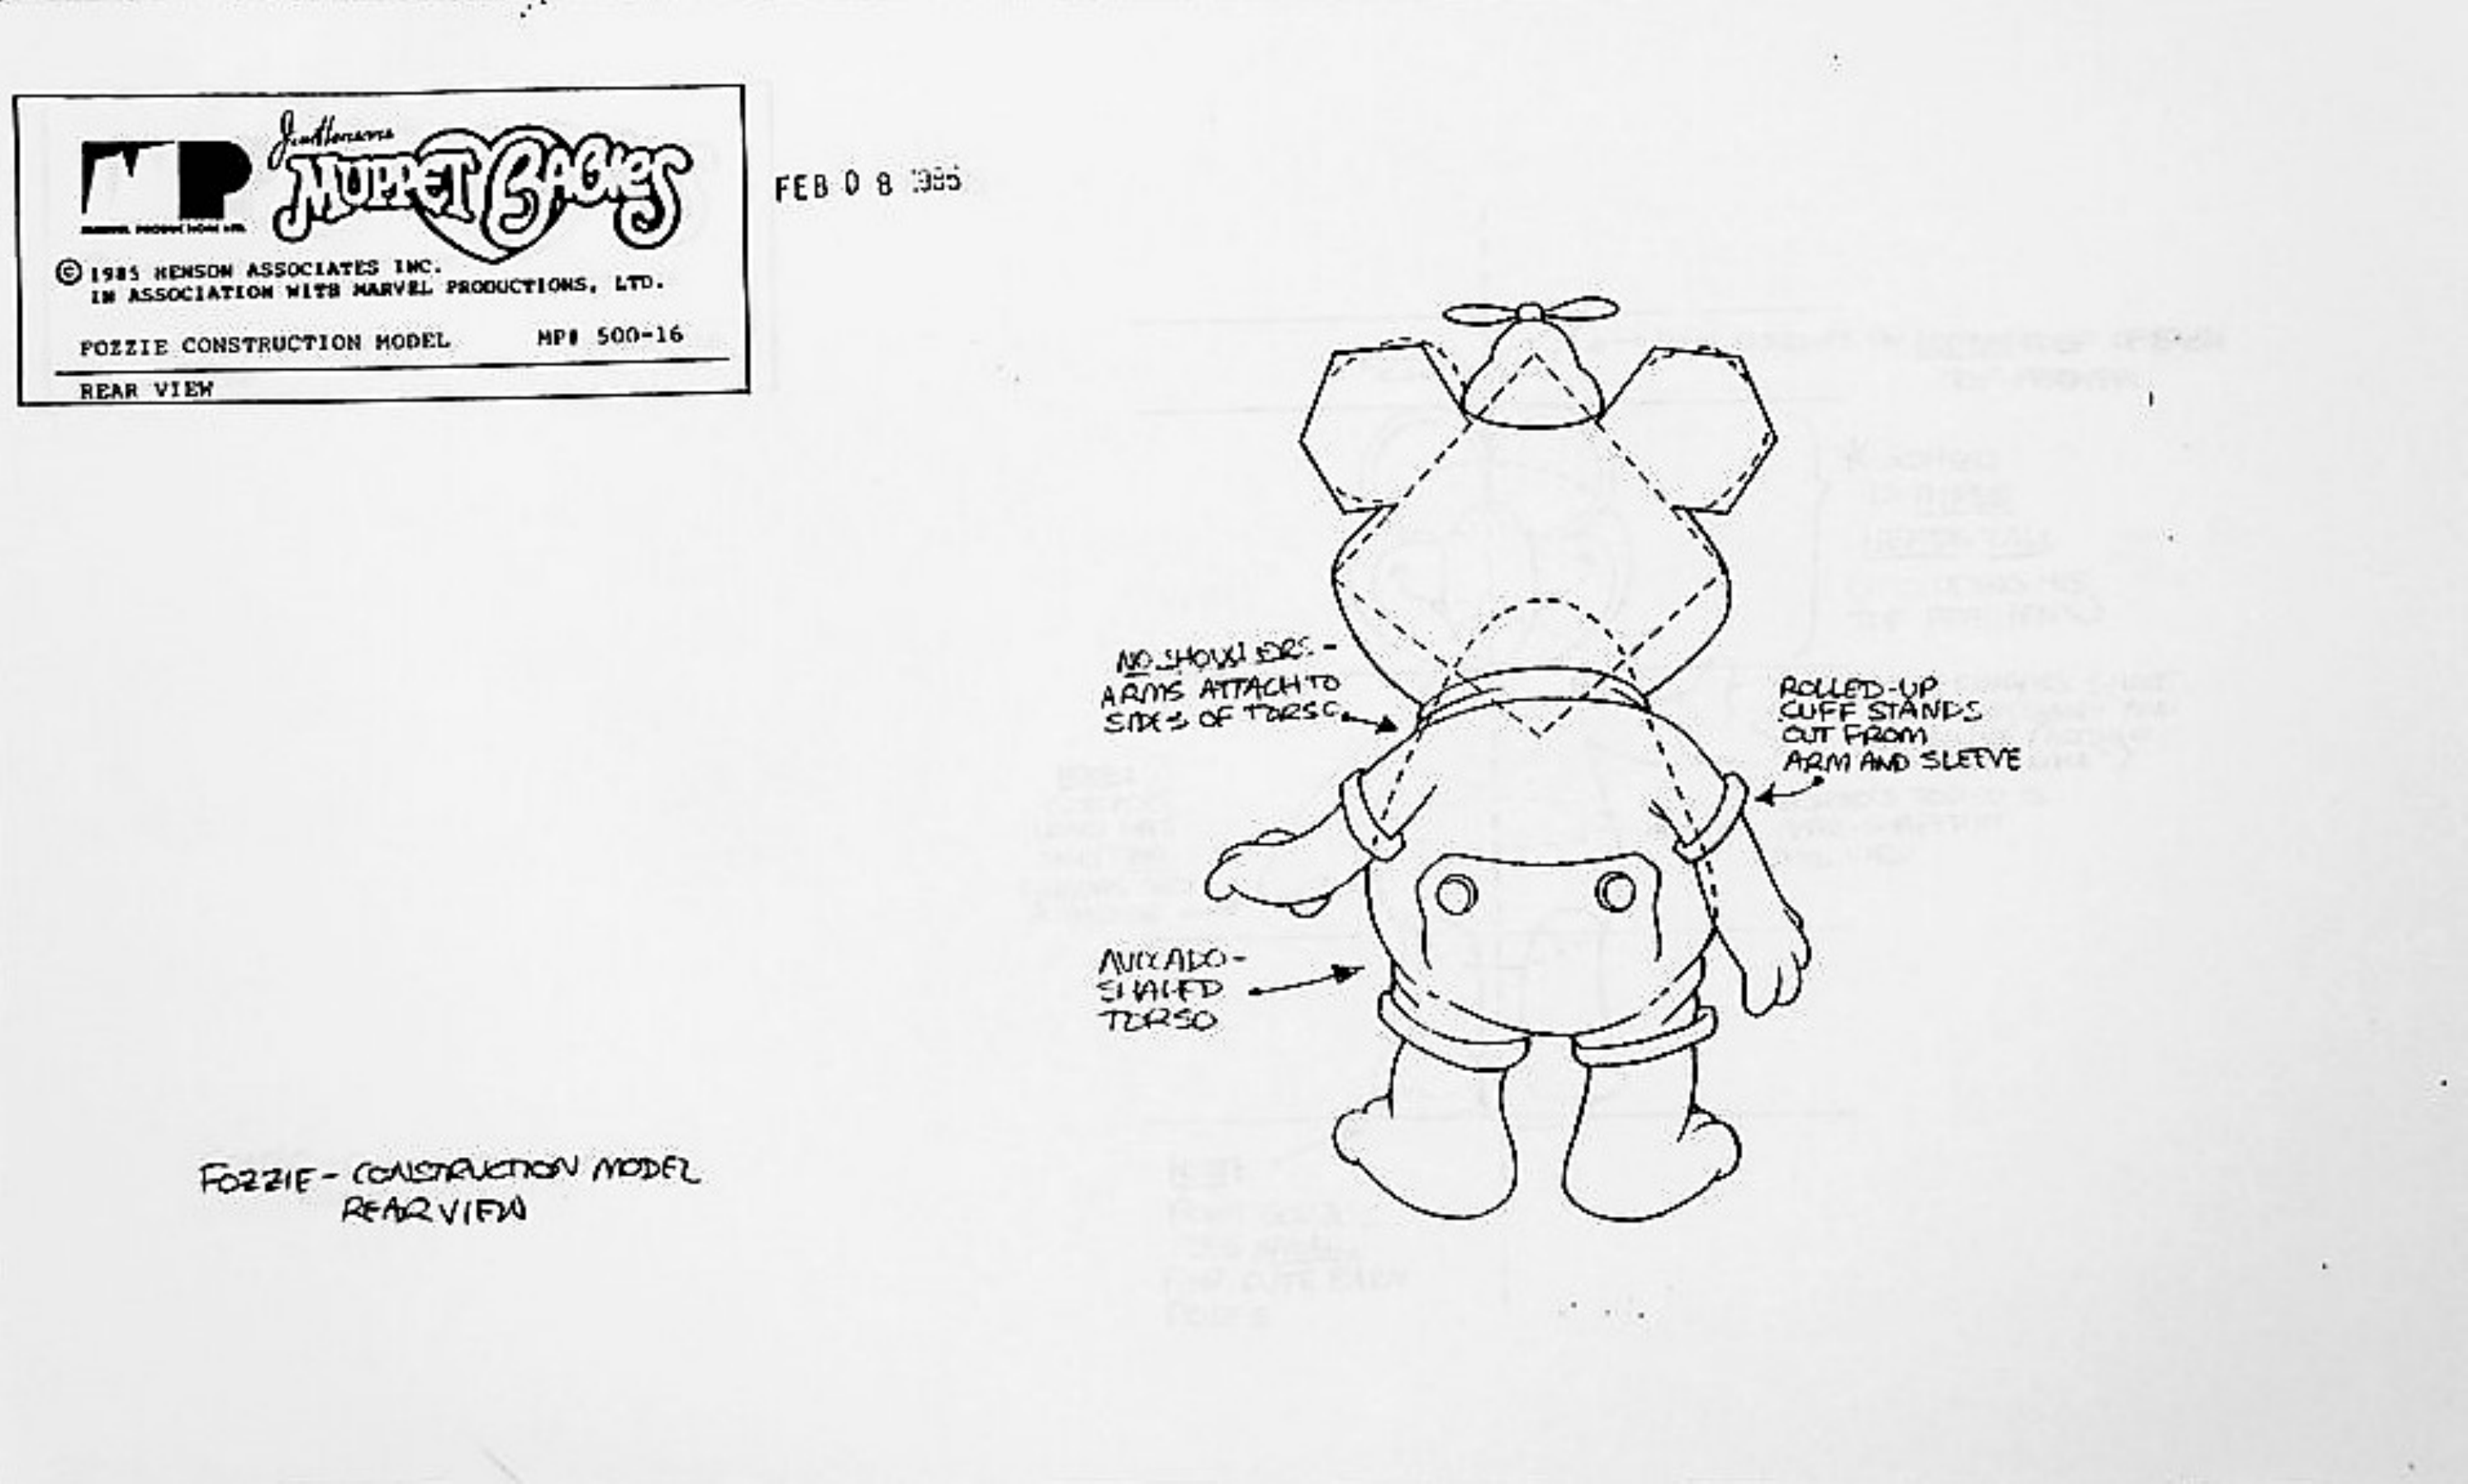 Jim Henson's
MUPPET BABIES
MP
MARVEL PRODUCTIONS LTD.
© 1985 HENSON ASSOCIATES INC.
IN ASSOCIATION WITH MARVEL PRODUCTIONS, LTD.
FOZZIE CONSTRUCTION MODEL MP# 500-16
REAR VIEW
FEB 08 1985
NO SHOULDERS-
ARMS ATTACH TO
SIDES OF TORSO
ROLLED-UP
CUFF STANDS
OUT FROM
ARM AND SLEEVE
AVOCADO-
SHAPED
TORSO
FOZZIE - CONSTRUCTION MODEL
REAR VIEW